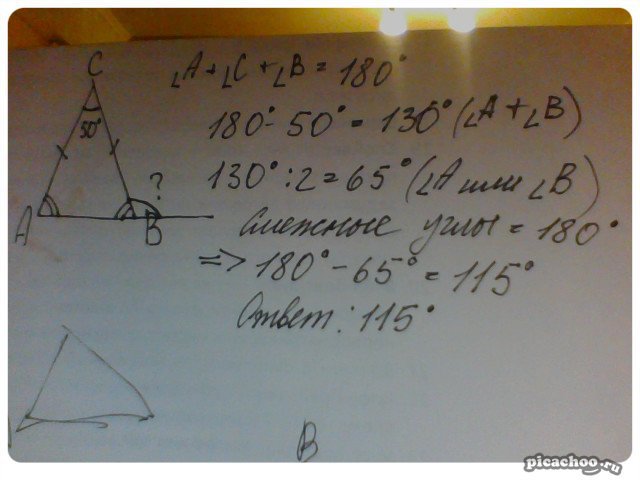 C
∠A+∠C+∠B=180°
50°
180°-50°=130°(∠A+∠B)
130°:2=65°(∠A или ∠B)
?
A
B
Смежные углы=180°
=>180°-65°=115°
Ответ: 115°
B
picachoo.ru